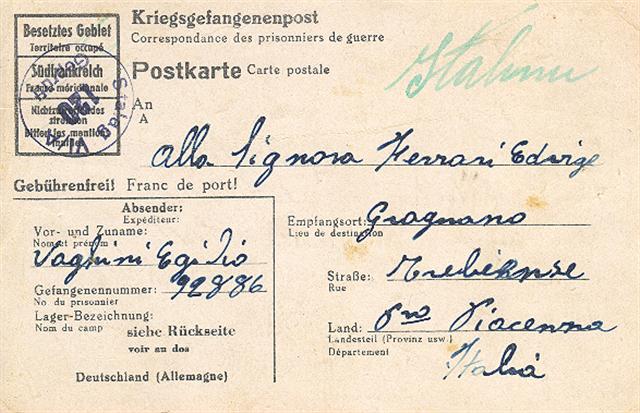 Besetztes Gebiet
Territoire occupé
Südfrankreich
France méridionale
Nichtzutreffendes
streichen
Biffer les mentions
inutiles
Stalag VI A
Geprüft
Kriegsgefangenenpost
Correspondance des prisonniers de guerre
Postkarte Carte postale
Italien
An
A
Alla Signora Ferrari Edvige
Gebührenfrei! Franc de port!
Absender:
Expéditeur:
Vor- und Zuname:
Nom et prénom
Vaghini Egidio
Gefangenennummer: 92886
No du prisonnier
Lager-Bezeichnung:
Nom du camp siehe Rückseite
voir au dos
Deutschland (Allemagne)
Empfangsort: Gragnano
Lieu de destination
Straße: Trebiense
Rue
Land: Pro Piacenna
Landesteil (Provinz usw.)
Département
Italia